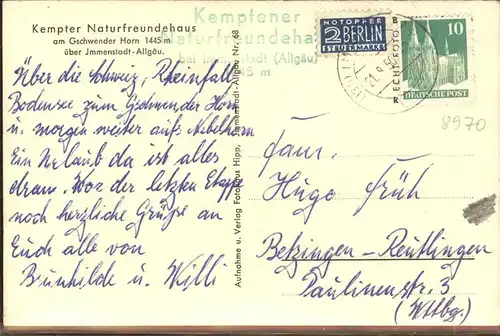 Kempter Naturfreundehaus
am Gschwender Horn 1445 m
über Jmmenstadt-Allgäu.
Kemptener
Naturfreundehaus
bei Immenstadt (Allgäu)
NOTOPFER
2 BERLIN
STEUERMARKE
10
DEUTSCHE POST
ECHT FOTO
8970
Über die Schweiz, Rheinfall
Bodensee zum Gschwender Horn
u. morgen weiter aufs Nebelhorn
Ein Urlaub da ist alles
dran. Vor der letzten Etappe
noch herzliche Grüße an
Euch alle von
Brunhilde u. Willi
Aufnahme u. Verlag Fotohaus Hipp, Jmmenstadt-Allgäu Nr. 68
Fam.
Hugo Früh
Betzingen-Reutlingen
Paulinenstr. 3
(Wttbg.)